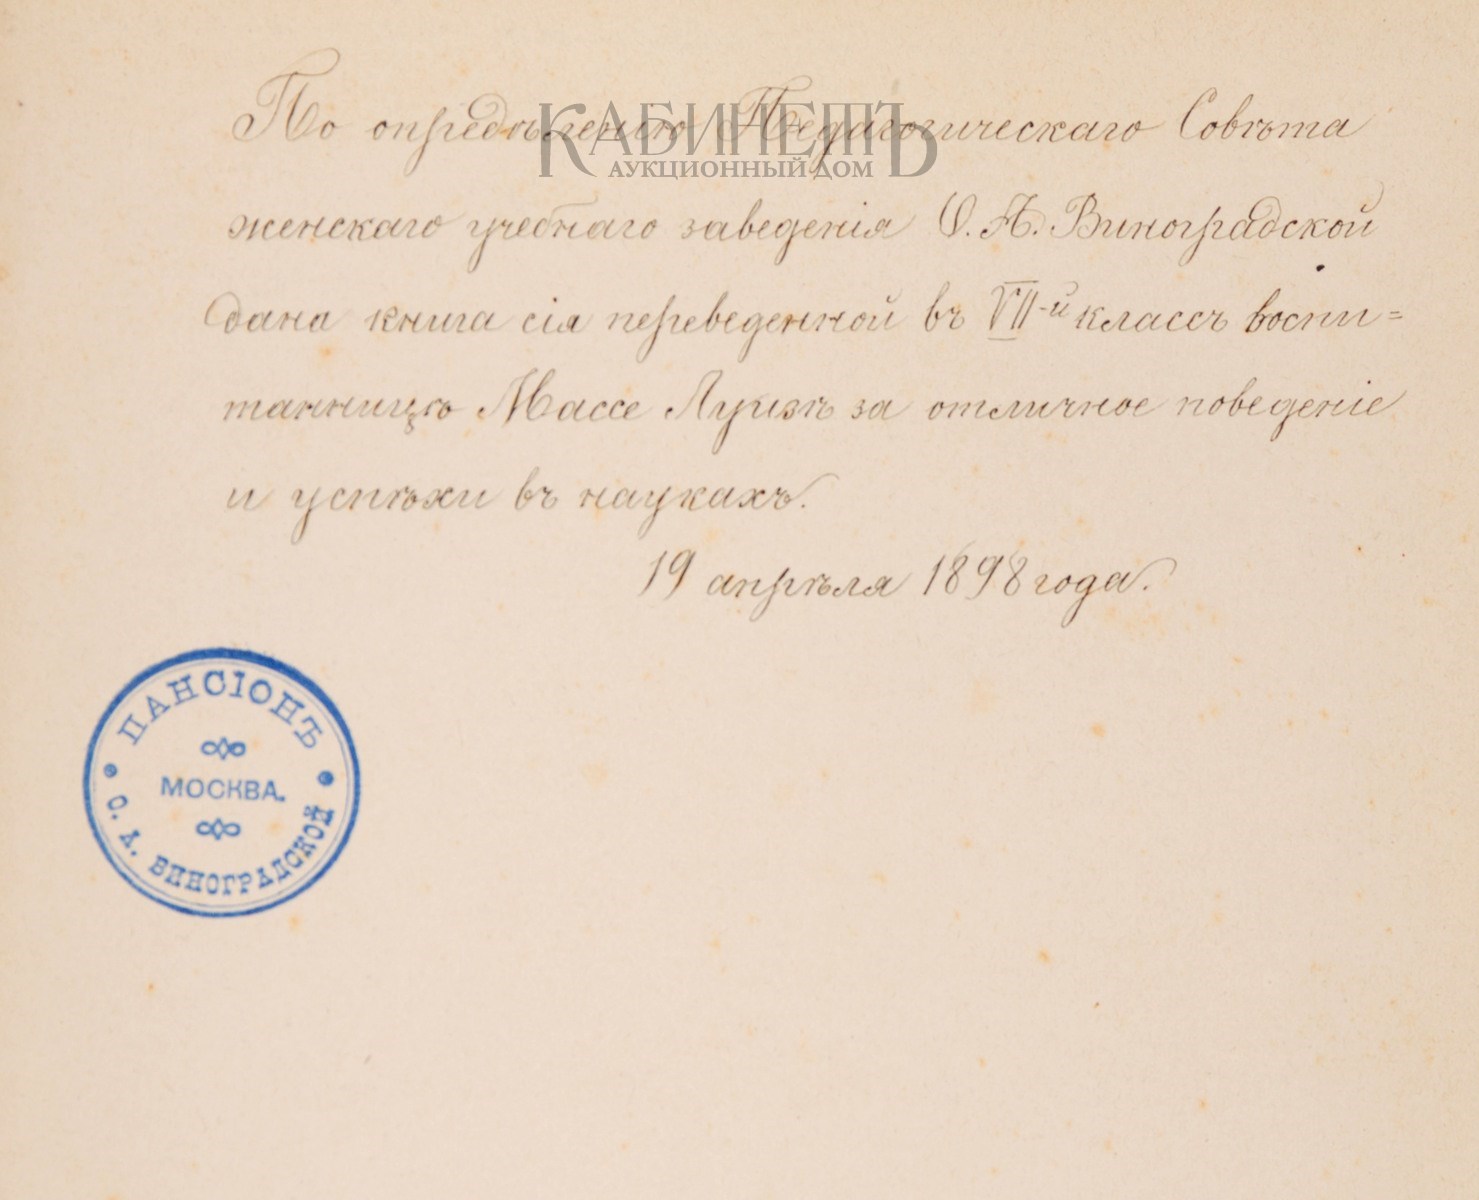 По опредѣленію Педагогическаго Совѣта
КАБИНЕТЪ
АУКЦИОННЫЙ ДОМ
женскаго учебнаго заведенія О. А. Виноградской
дана книга сія переведенной въ VII-й классъ воспи=
танницѣ Массе Луизѣ за отличное поведеніе
и успѣхи въ наукахъ.
19 апрѣля 1898 года.
ПАНСІОНЪ
МОСКВА.
О. А. ВИНОГРАДСКОЙ